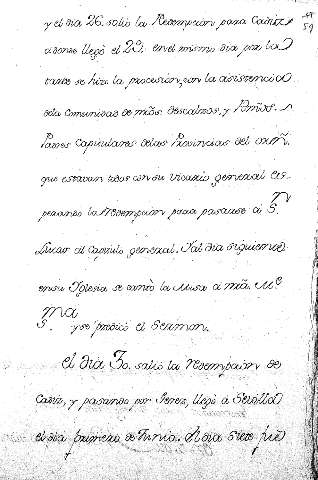 59
y el dia 26. salió la Redempcion para Cadiz
adonde llegò el 29. en el mismo dia por la
tarde se hizo la procesion, con la asistencia
dela Comunidad de nros. descalzos, y
Padres Capitulares delas Provincias del
que estavan todos con su vicario general es-
perando la Redempcion para pasarse á S.
Lucar al capitulo general. Y al dia siguiente
en su Yglesia se cantò la Misa á nra. Me.
y se predicó el Sermon.
el dia 30. salió la redempcion de
Cadiz, y pasando por Xerez, llegò a Sevilla
el dia primero de Junio. Al dia siete fue